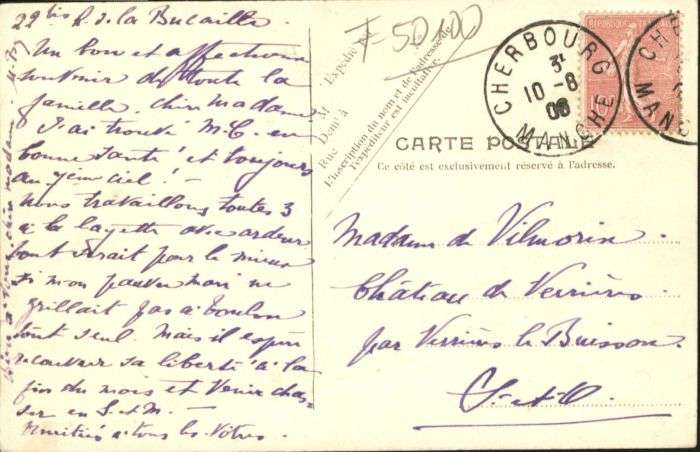 22 bis R. de la Bucaille
Un bon et affectueux
souvenir de toute la
famille, chère Madame
J'ai trouvé M.C. en
bonne santé et toujours
au 7ème ciel! -
nous travaillons toutes 3
à la layette avec ardeur
tout serait pour le mieux
si mon pauvre mari ne
grillait pas à Toulon
tout seul. Mais il espère
recouvrer sa liberté à la
fin du mois et venir chas-
ser en S. et M. -
Amitiés à tous les Vôtres.
bien à vous, chère madame
F = 50100
Expédié par
M
Demt à
Rue
L'inscription du nom et de l'adresse de
l'expéditeur est facultative.
CARTE POSTALE
Ce côté est exclusivement réservé à l'adresse.
CHERBOURG
3E
10-8
06
MANCHE
RÉPUBLIQUE FRANÇAISE
CHE
MANC
Madame de Vilmorin
Château de Verrières
par Verrières le Buisson.
S-et-O.